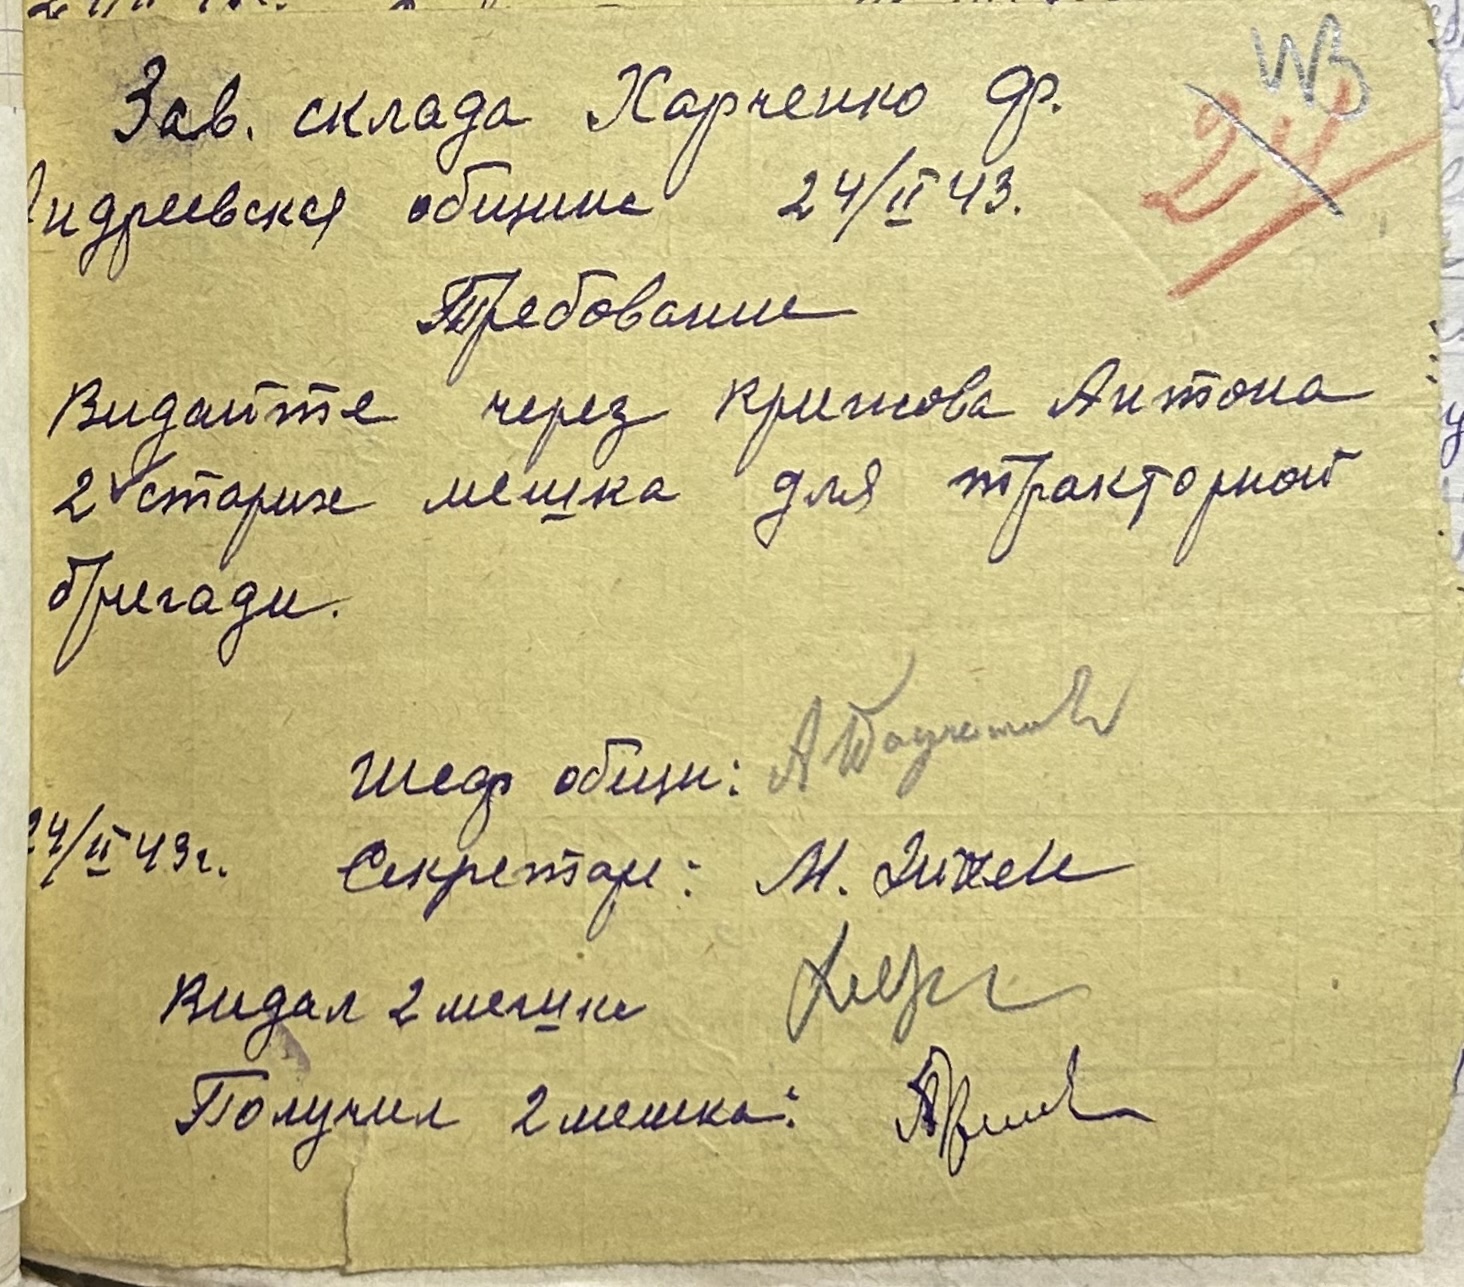 №3
24
Зав. склада Харченко Фр.
Андреевская общине 24/II 43.
Требование
Видайте через Крижова Антона
2 старих мешка для тракторной
бригади.
Шеф общи:
24/II 43г. Секретарь: М.
Видал 2 мешка
Получил 2 мешка: